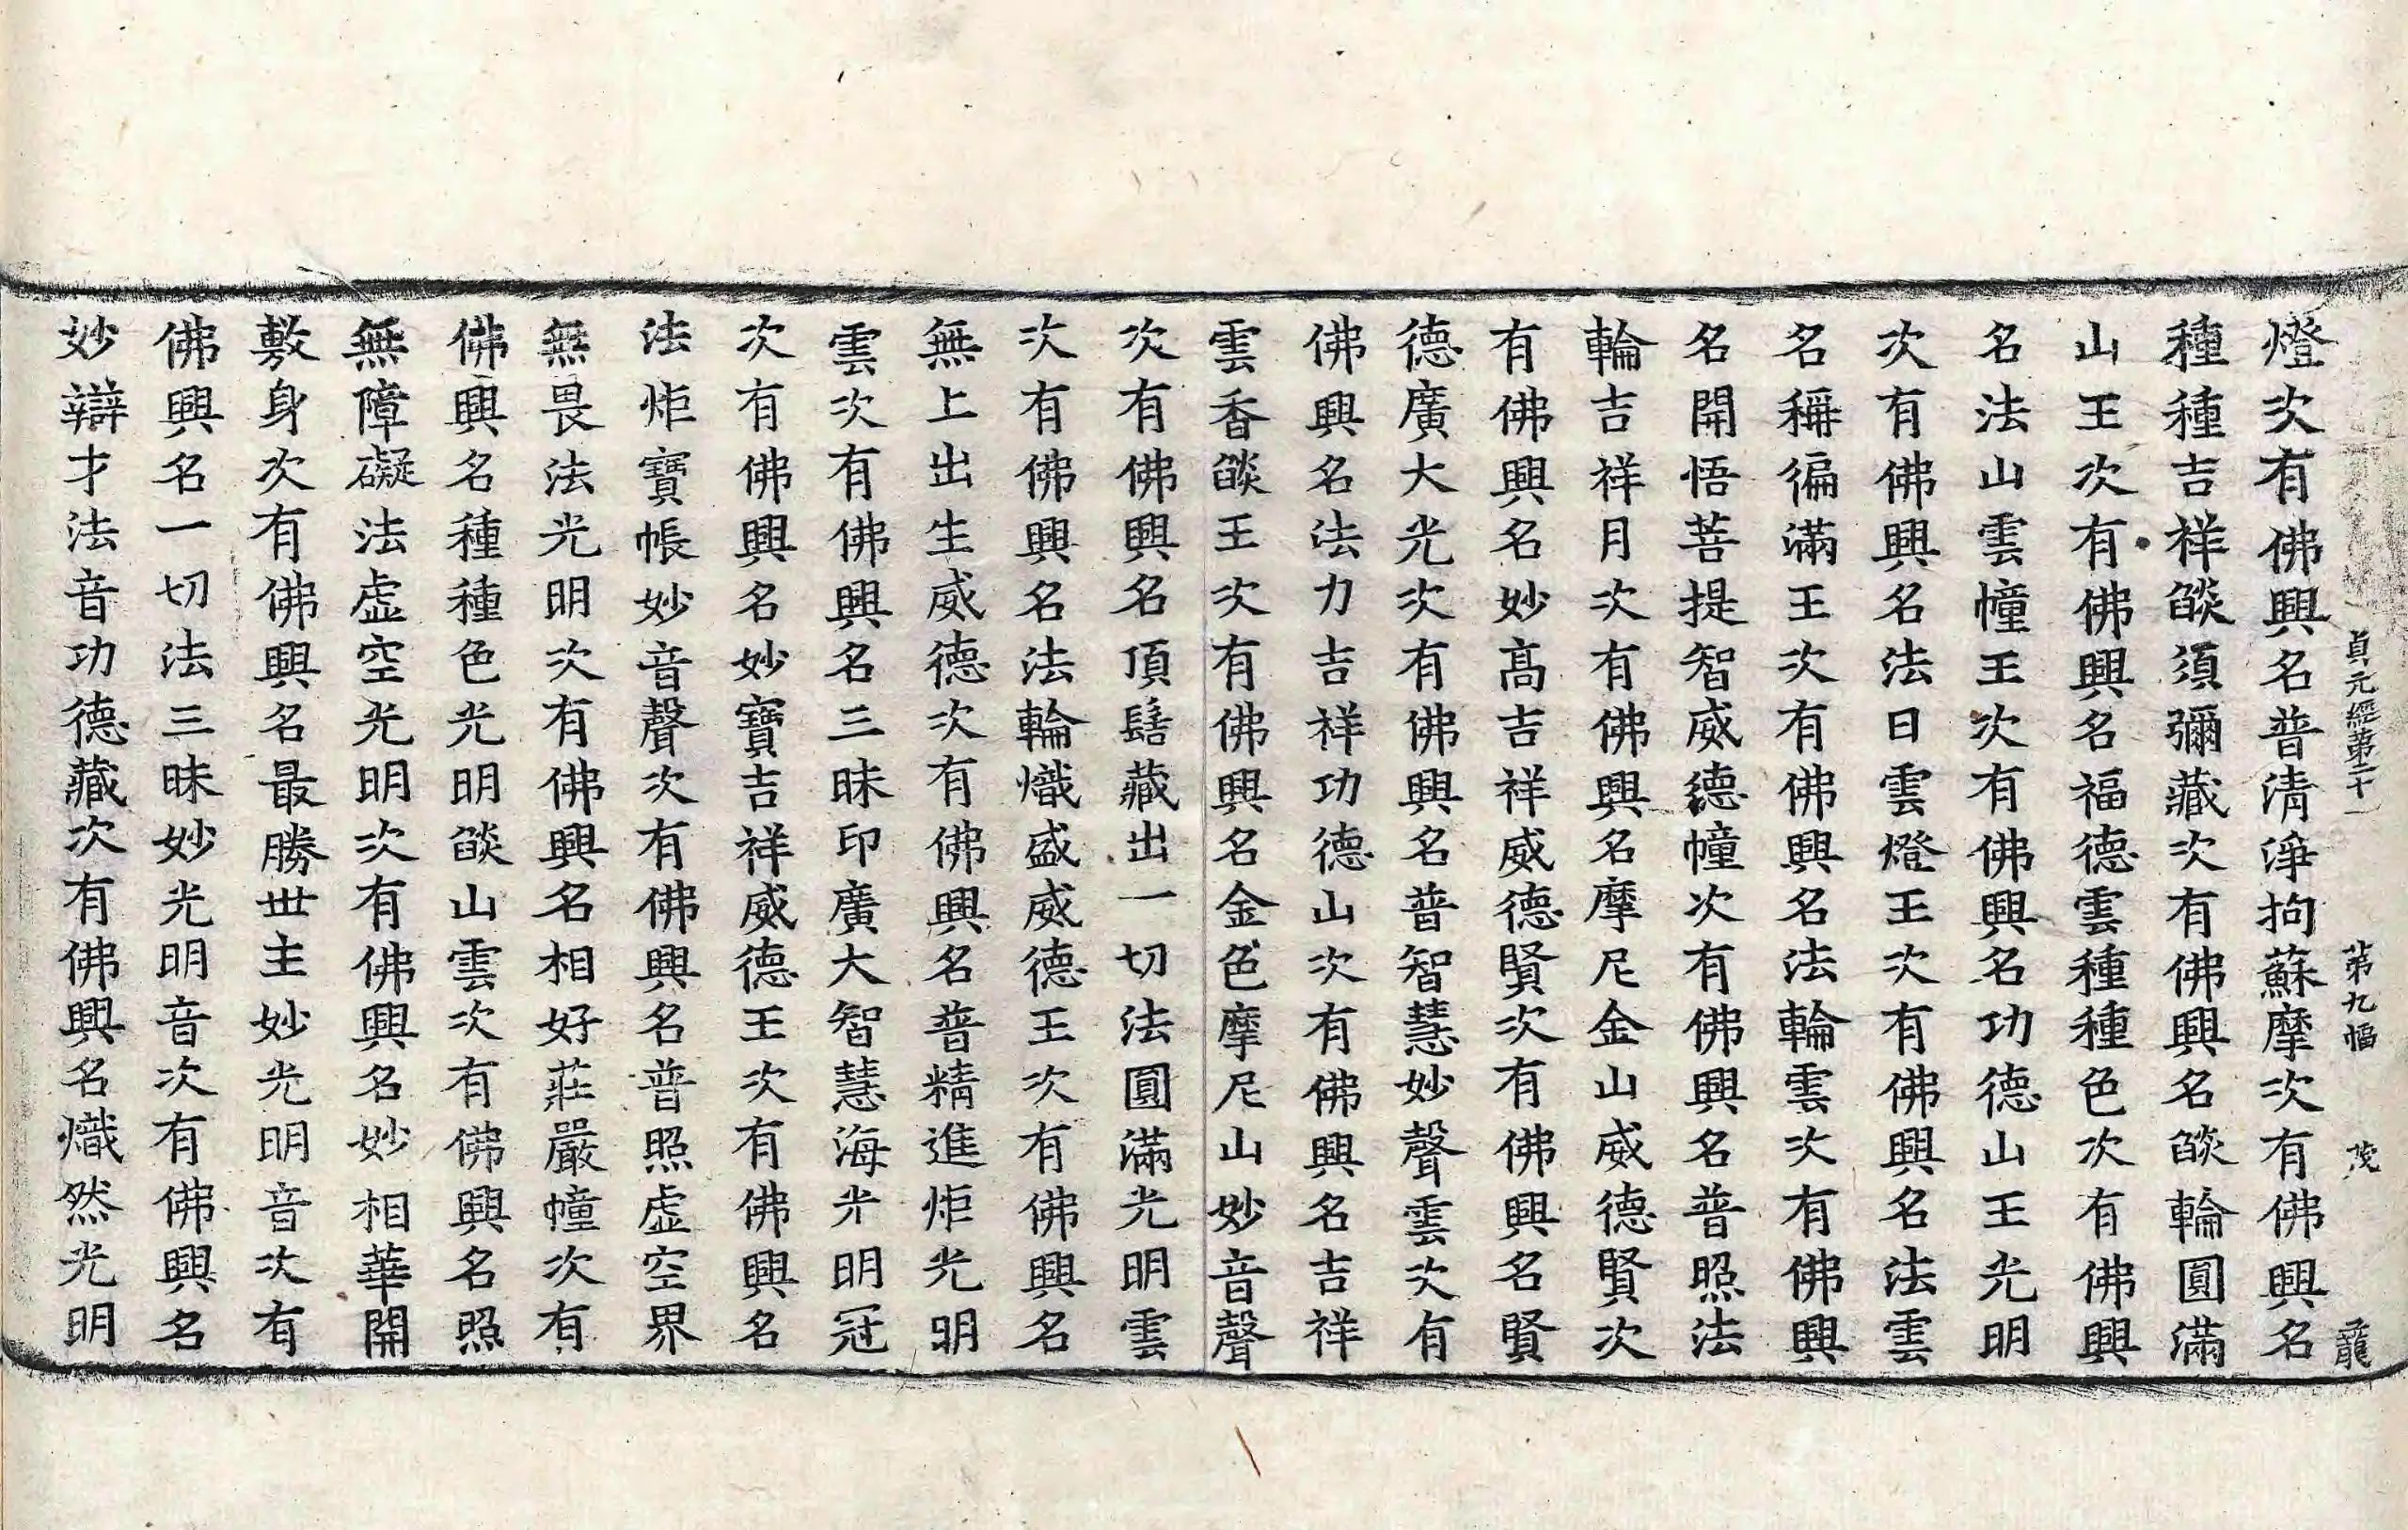 貞元經第二十一　第九幅　茂　龍
燈次有佛興名普清淨拘蘇摩次有佛興名
種種吉祥燄須彌藏次有佛興名燄輪圓滿
山王次有佛興名福德雲種種色次有佛興
名法山雲幢王次有佛興名功德山王光明
次有佛興名法日雲燈王次有佛興名法雲
名稱徧滿王次有佛興名法輪雲次有佛興
名開悟菩提智威德幢次有佛興名普照法
輪吉祥月次有佛興名摩尼金山威德賢次
有佛興名妙高吉祥威德賢次有佛興名賢
德廣大光次有佛興名普智慧妙聲雲次有
佛興名法力吉祥功德山次有佛興名吉祥
雲香燄王次有佛興名金色摩尼山妙音聲
次有佛興名頂髻藏出一切法圓滿光明雲
次有佛興名法輪熾盛威德王次有佛興名
無上出生威德次有佛興名普精進炬光明
雲次有佛興名三昧印廣大智慧海光明冠
次有佛興名妙寶吉祥威德王次有佛興名
法炬寶帳妙音聲次有佛興名普照虛空界
無畏法光明次有佛興名相好莊嚴幢次有
佛興名種種色光明燄山雲次有佛興名照
無障礙法虛空光明次有佛興名妙相華開
敷身次有佛興名最勝世主妙光明音次有
佛興名一切法三昧妙光明音次有佛興名
妙辯才法音功德藏次有佛興名熾然光明